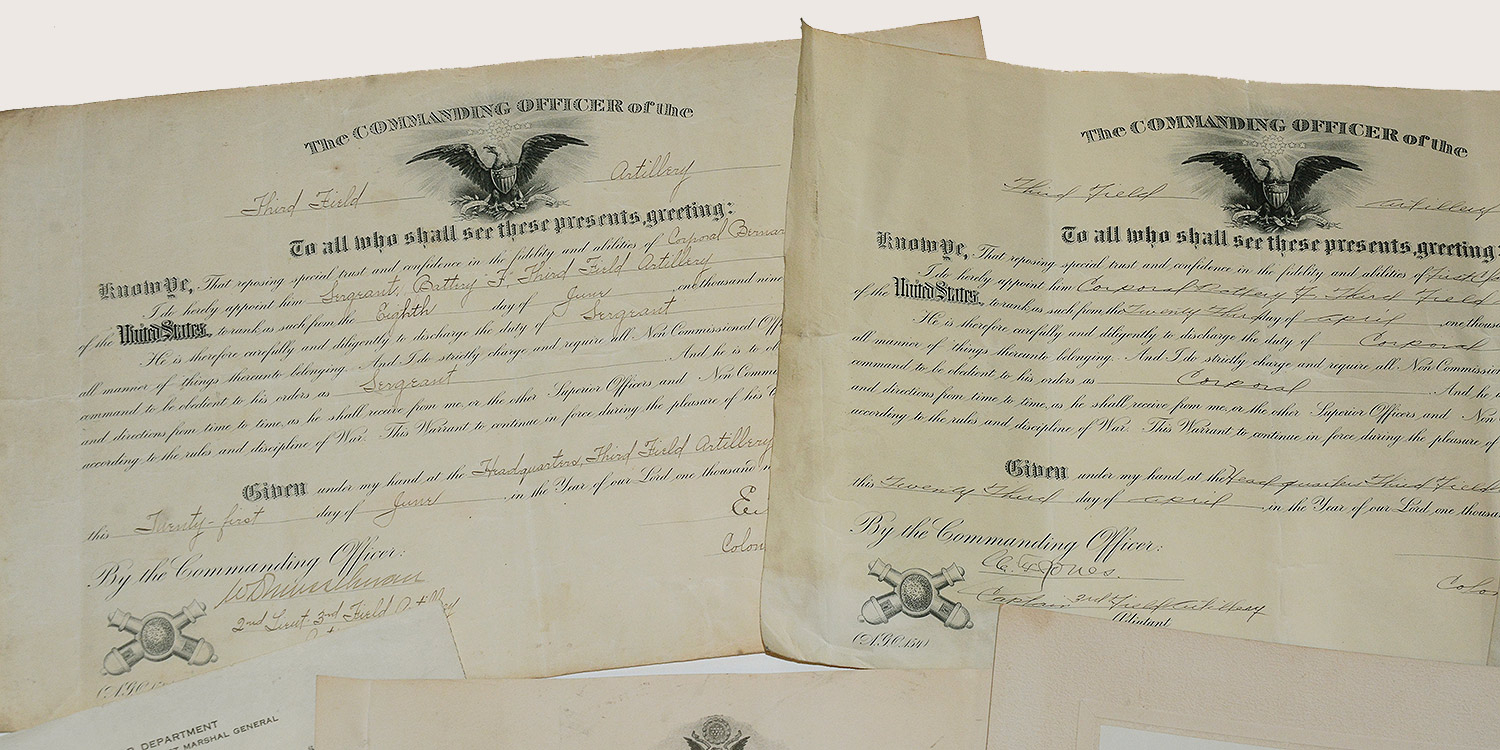 The COMMANDING OFFICER of the
Third Field Artillery
To all who shall see these presents, greeting:
Know Ye, That reposing special trust and confidence in the fidelity and abilities of Corporal
I do hereby appoint him Sergeant, Battery F, Third Field Artillery
of the United States, to rank as such from the Eighth day of June, one thousand nine
He is therefore carefully and diligently to discharge the duty of Sergeant
all manner of things thereunto belonging. And I do strictly charge and require all Non Commissioned
command to be obedient to his orders as Sergeant. And he is to
and directions from time to time, as he shall receive from me, or the other Superior Officers and Non
according to the rules and discipline of War. This Warrant to continue in force during the pleasure of his
Given under my hand at the Headquarters, Third Field Artillery
this Twenty-first day of June, in the Year of our Lord one thousand
By the Commanding Officer:
2nd Lieut 3rd Field
The COMMANDING OFFICER of the
Third Field Artillery
To all who shall see these presents, greeting:
Know Ye, That reposing special trust and confidence in the fidelity and abilities of First
I do hereby appoint him Corporal Battery F, Third Field
of the United States, to rank as such from the Twenty Third day of April, one
He is therefore carefully and diligently to discharge the duty of Corporal
all manner of things thereunto belonging. And I do strictly charge and require all Non
command to be obedient to his orders as Corporal. And he
and directions from time to time, as he shall receive from me, or the other Superior Officers and Non
according to the rules and discipline of War. This Warrant to continue in force during the pleasure of
Given under my hand at the Headquarters Third Field
this Twenty Third day of April, in the Year of our Lord one
By the Commanding Officer:
Jones.
Captain 3rd Field Artillery
Adjutant
(A.G.O. 154)
DEPARTMENT
MARSHAL GENERAL